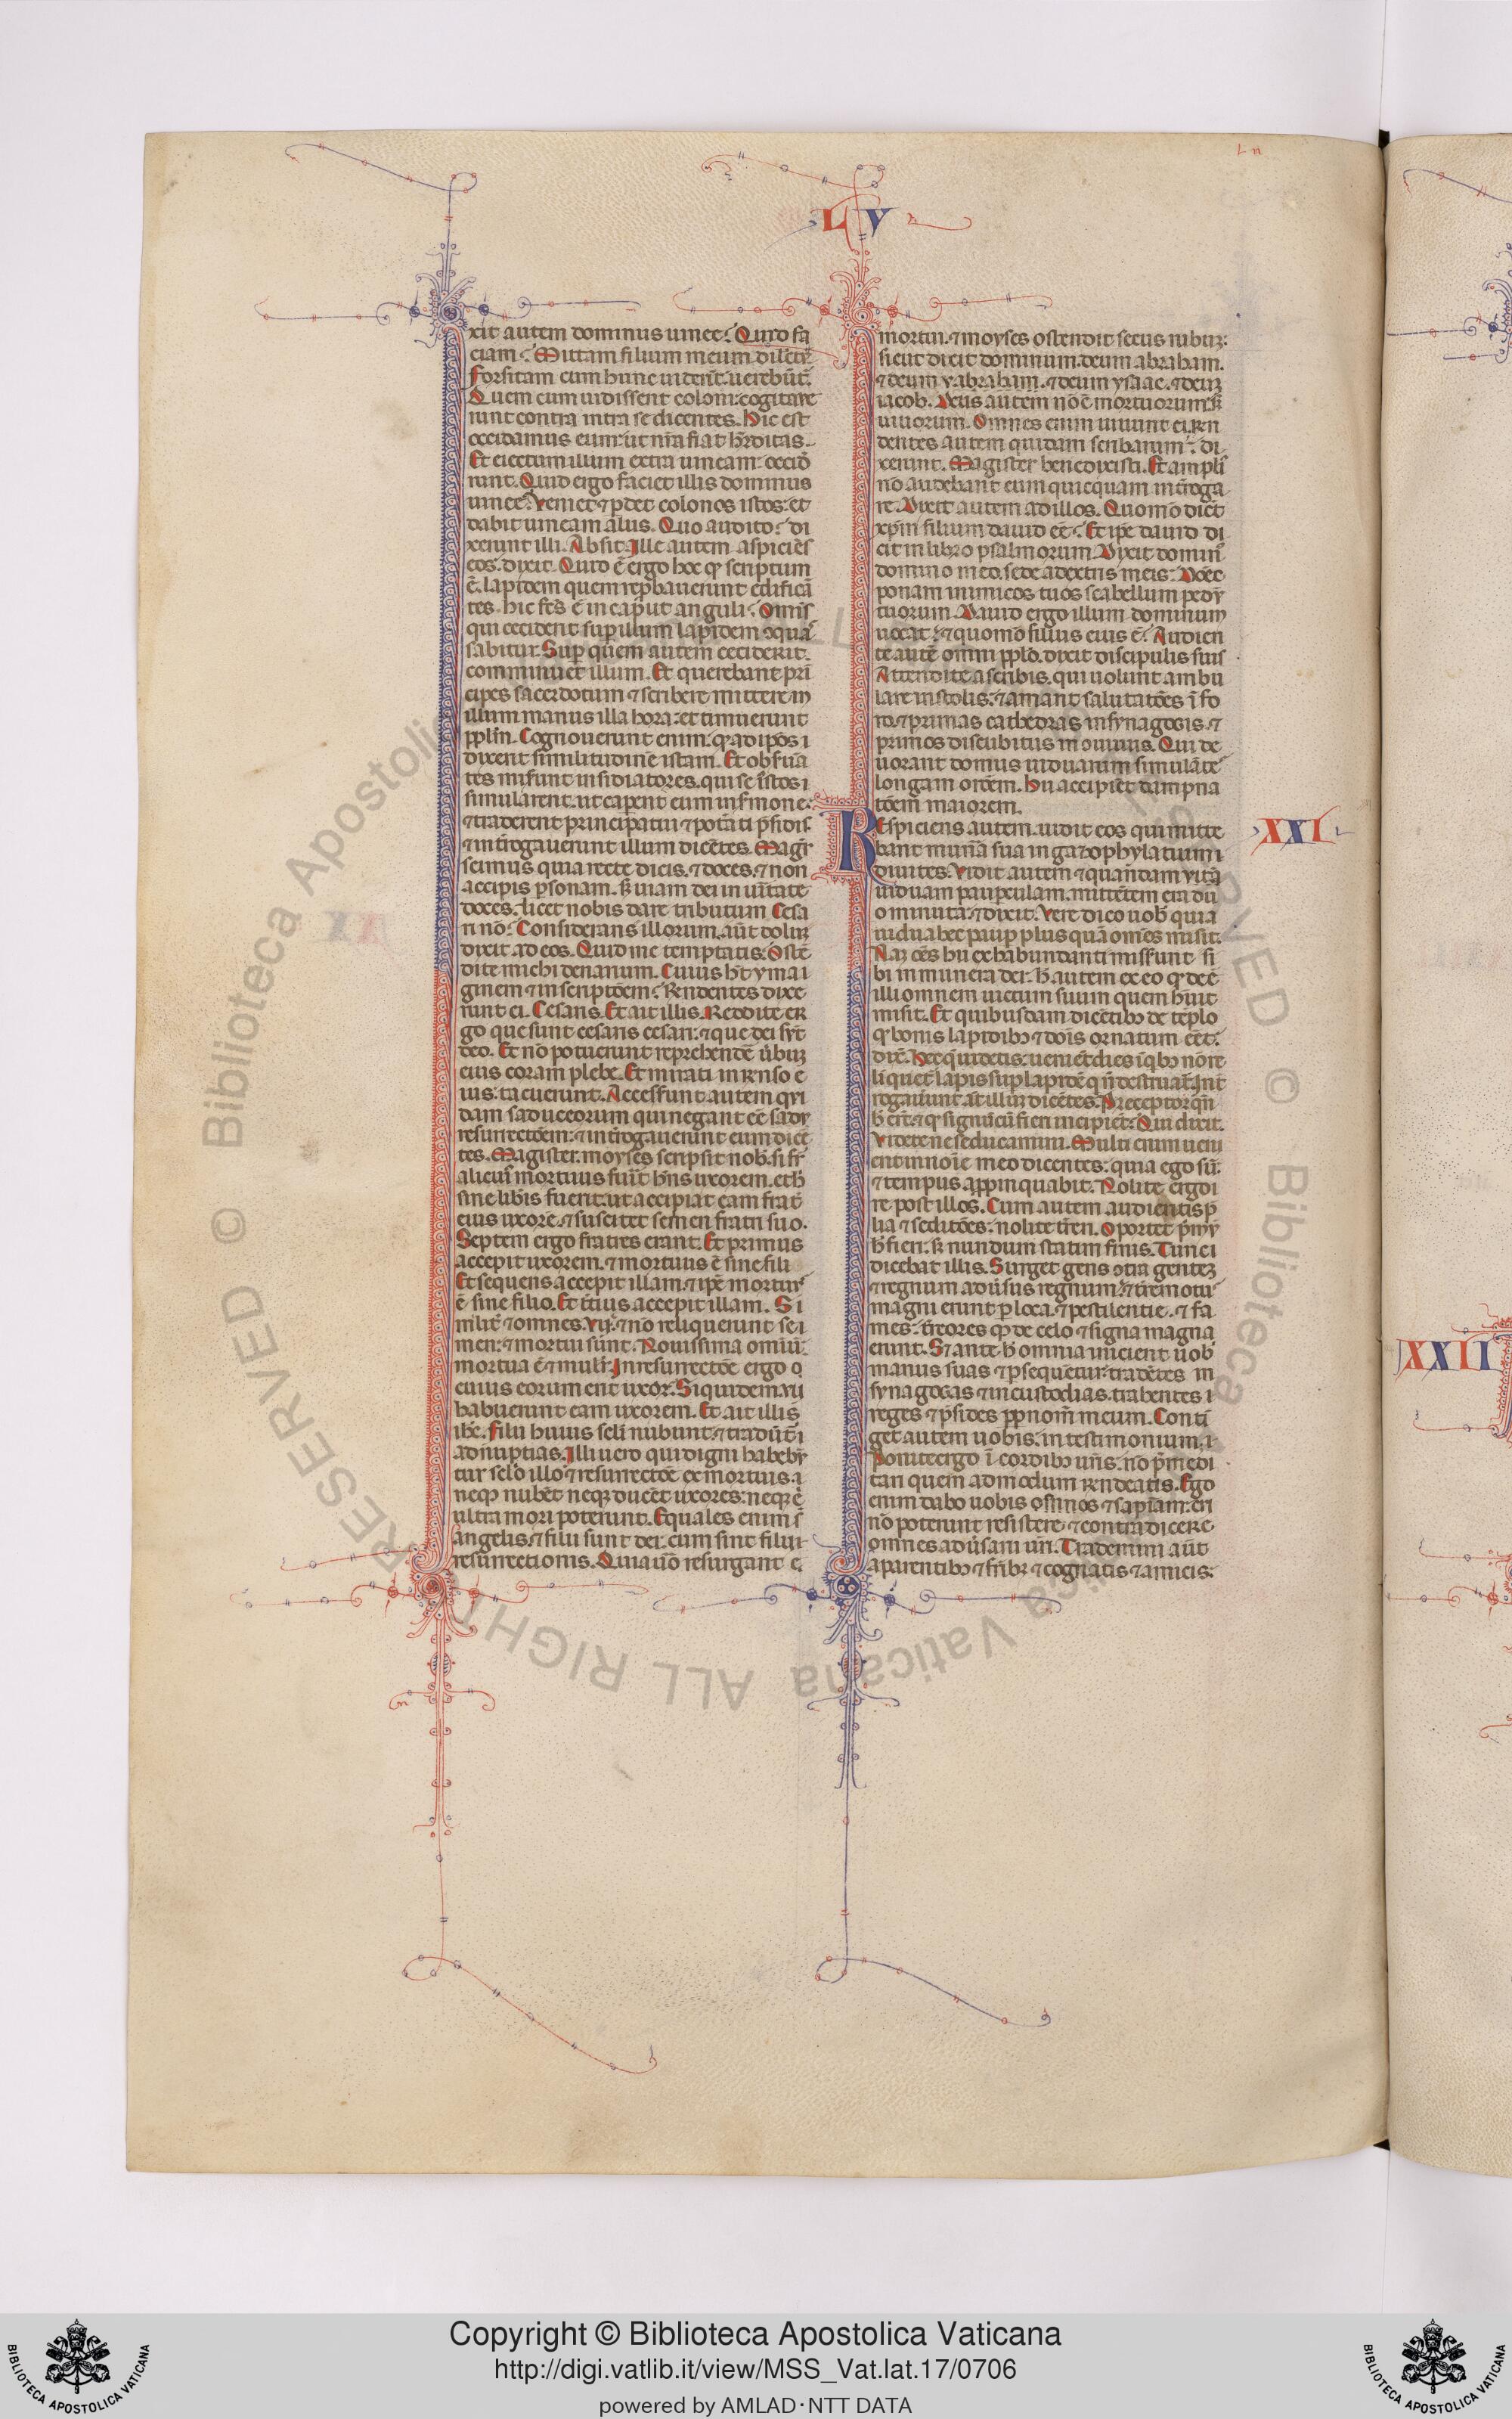 L V
xit autem dominus uinee. Quid fa
ciam. Mittam filium meum dilectū
forsitam cum hunc uiderīt. uerebūt̄.
Quem cum uidissent coloni: cogitaue
runt contra intra se dicentes. Hic est
occidamus eum: ut nr̄a fiat hr̄ditas.
Et eiectum illum extra uineam: occid
runt. Quid ergo faciet illis dominus
uinee. Veniet ⁊ ꝑdet colonos istos: et
dabit uineam alus. Quo audito: di
xerunt illi. Absit. Ille autem aspiciēs
eos. dixit. Quid ē ergo hoc qͩ scriptum
ē. lapidem quem reꝓbauerunt edificā
tes. hic fc̄s ē in caput anguli. Omis̄
qui ceciderit suꝑ illum lapidem ꝯqua
sabitur. Suꝑ quem autem ceciderit.
comminuet illum. Et querebant pri
cipes sacerdotum ⁊ scribere mittere in
illum manus illa hora: et timuerunt
ppl̄m. Cognouerunt enim. qͩ ad ip̄os
dixerit similitudinē istam. Et obs̄ua
tes mis̄unt insidiatores. qui se īstos
simularent. ut caperent eum in s̄mone:
⁊ traderent principatui ⁊ potāti p̄sidis.
⁊ int̄rogauerunt illum dicētes. Magr̄
scimus quia recte dicis. ⁊ doces. ⁊ non
accipis ꝑsonam. s̄ uiam dei in uītate
doces. licet nobis dare tributum Cesa
ri nō. Considerans illorum. aūt dolum
dixit ad eos. Quid me temptatis. Ostē
dite michi denarium. Cuius hīt ymai
ginem ⁊ in scriptōem. Rn̄dentes dixe
runt ei. Cesaris. Et ait illis. Reddite er
go que sunt cesaris cesari: ⁊ que dei sūt
deo. Et nō potuerunt reprehendē ūbum
eius coram plebe. Et mirati in rn̄so e
ius. tacuerunt. Accesserunt autem qui
dam saduceorum qui negant eē
resurrectōem: ⁊ int̄rogauerunt eum dicē
tes. Magister. moyses scripsit nob̄. si fr̄
alicuī mortuus fuīt hn̄s uxorem. et h̄
sine lib̄is fuerit: ut accipiat eam frat̄
eius uxorē. ⁊ suscitet semen fratri suo.
Septem ergo fratres erant. Et primus
accepit uxorem. ⁊ mortuus ē sine fili
Et sequens accepit illam. ⁊ ip̄e mortuus
ē sine filio. Et t̄cius accepit illam. Si
milit̄ ⁊ omnes. vij. ⁊ nō reliquerunt sei
men: ⁊ mortui sunt. Nouissima omiū.
mortua ē ⁊ mulī. In resurrectōe ergo
cuius eorum erit uxor. Siquidem. vii
habuerunt eam uxorem. Et ait illis
ih̄c. Filii huius seli nubunt. ⁊ tradūt̄
ad nuptias. Illi uero qui digni habebū
tur sel̄o illo ⁊ resurrectōe ex mortuis.
neqꝫ nubēt neqꝫ ducēt uxores: neqꝫ
ultra mori poterunt. Equales enim s̄
angelis. ⁊ filii sunt dei: cum sint filii
resurrectionis. Quia uō resurgant
mortui. ⁊ moyses ostendit secus rubum:
sicut dicit dominum. deum abraham.
⁊ deum y abraham. ⁊ deum ysaac. ⁊ deum
iacob. Deus autem nō ē mortuorum s̄
uiuorum. Omnes enim uiuunt ei. Rn̄
dentes autem quidam scribarum: di
xerunt. Magister bene dixisti. Et ampli
nō audebant eum quicquam int̄roga
re. Dixit autem ad illos. Quomō dicūt
xp̄m filium dauid eē. Et ip̄e dauid di
cit in libro psalmorum. Dixit domin̄
domino meo. sede a dextris meis: Donec
ponam inimicos tuos scabellum pedū
tuorum. Dauid ergo illum dominum
uocat: ⁊ quomō filius eius ē. Audien
te autē omni pplō. dixit discipulis suis
Attendite a scribis. qui uolunt ambu
lare in stolis: ⁊ amant salutatōes ī fo
ro. ⁊ primas cathedras in synagogis. ⁊
primos discubitus in ouiuus. Qui de
uorant domus uiduarum simulāte
longam orōem. Hii accipiēt dampna
tōem maiorem.
REspiciens autem. uidit eos qui mitte
bant munā sua in gazophylatium
diuites. Vidit autem ⁊ quandam
uiduam pauꝑculam. mittētem era du
o minuta: ⁊ dixit. Vere dico uob̄ quia
uidua hec pauꝑ plus quā omēs misit.
Naꝫ oēs hii ex habundanti miss̄unt si
bi in munera dei. h̄ autem ex eo qͩ deē
illi omnem uictum suum quem h̄uit
misit. Et quibusdam dicētibꝫ de tēplo
qͩ bonis lapidibꝫ ⁊ dōis ornatum eēt.
dix̄. Hec q̄ uidetis: uenient dies ī qͥbꝫ nō re
linquet̄ lapis suꝑ lapidē qͥ n̄ destruat̄. Int̄
rogauunt āt illum dicētes. Preceptor qn̄
h̄ erūt. ⁊ qͩ signū cū fieri incipient. Qui dixit.
Videte ne seducamini. Multi enim ueni
ent in noīe meo dicentes: quia ego sū.
⁊ tempus appinquabit. Nolite ergo i
re post illos. Cum autem audieritis p̄
lia ⁊ seditōes: nolite t̄ren. Oportet p̄mū
h̄ fieri. s̄ nundum statim finis. Tunc
dicebat illis. Surget gens ꝯtra gentem
⁊ regnum adūsus regnum. ⁊ t̄remotus
magni erunt ꝑ loca. ⁊ pestilentie. ⁊ fa
mes: t̄rōres qꝫ de celo ⁊ signa magna
erunt. S̄ ante h̄ omnia inicient uob̄
manus suas ⁊ ꝑsequetur: tradētes in
synagogas ⁊ in custodias. trahentes
reges ⁊ p̄sides ꝓp nom̄ meum. Contī
get autem uobis. in testimonium.
Ponite ergo ī cordibꝫ ur̄is. nō p̄medi
tari quem admodum rn̄deatis. Ego
enim dabo uobis os ⁊ sapīam: cui
nō poterunt resistere. ⁊ contradicere
omnes adūsarii ur̄i. Trademini aūt
a parentibꝫ ⁊ fr̄ibꝫ ⁊ cognatis ⁊ amicis.
XXI
XXII
Copyright © Biblioteca Apostolica Vaticana
http://digi.vatlib.it/view/MSS_Vat.lat.17/0706
powered by AMLAD·NTT DATA
BIBLIOTECA APOSTOLICA VATICANA
BIBLIOTECA APOSTOLICA VATICANA